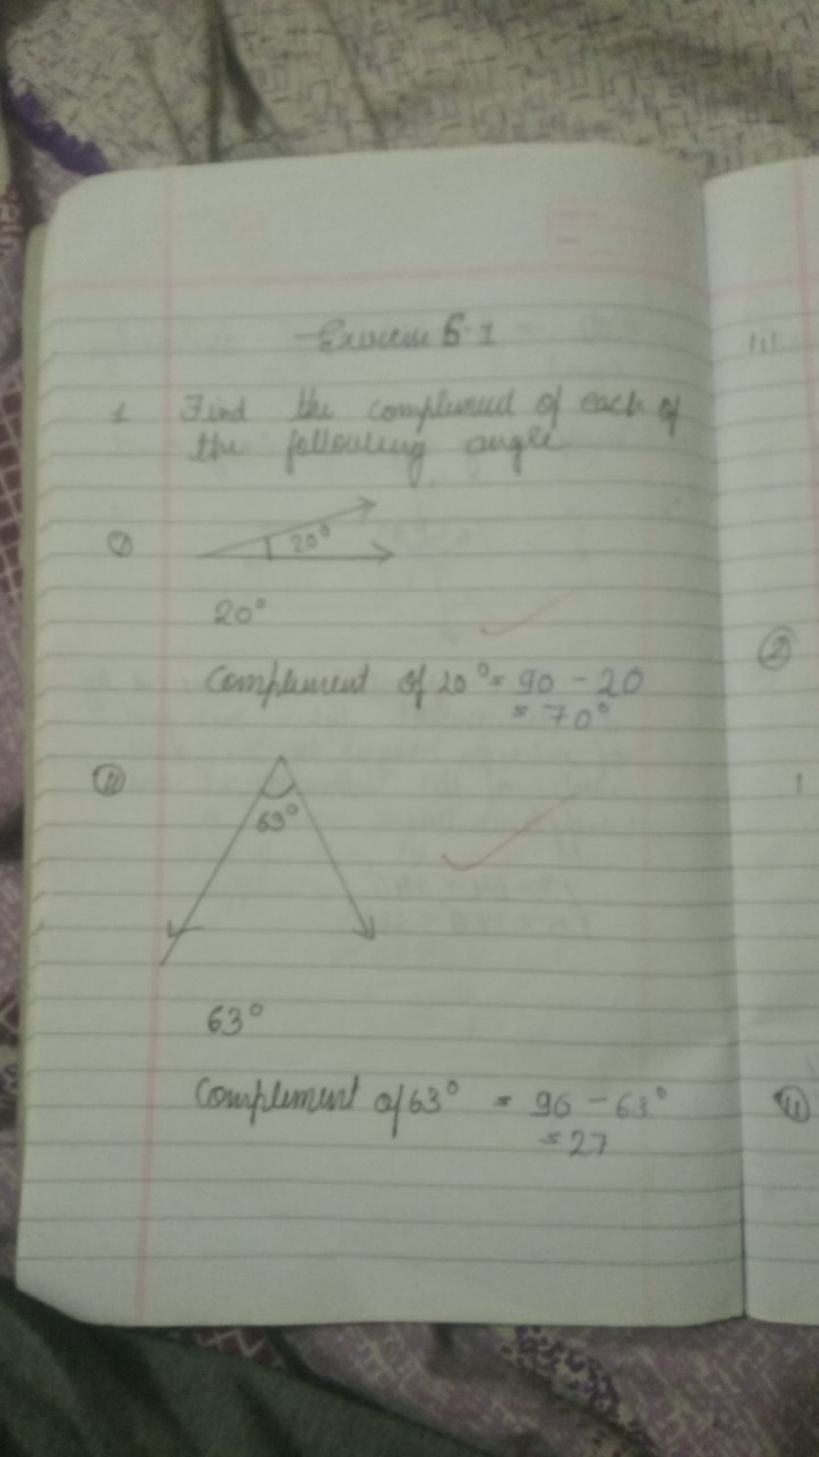 Exercise 5.1
1 Find the complement of each of
the following angle
i 20°
20°
Complement of 20° = 90 - 20
= 70°
ii
63°
63°
Complement of 63° = 90 - 63°
= 27
iii
2
i
ii